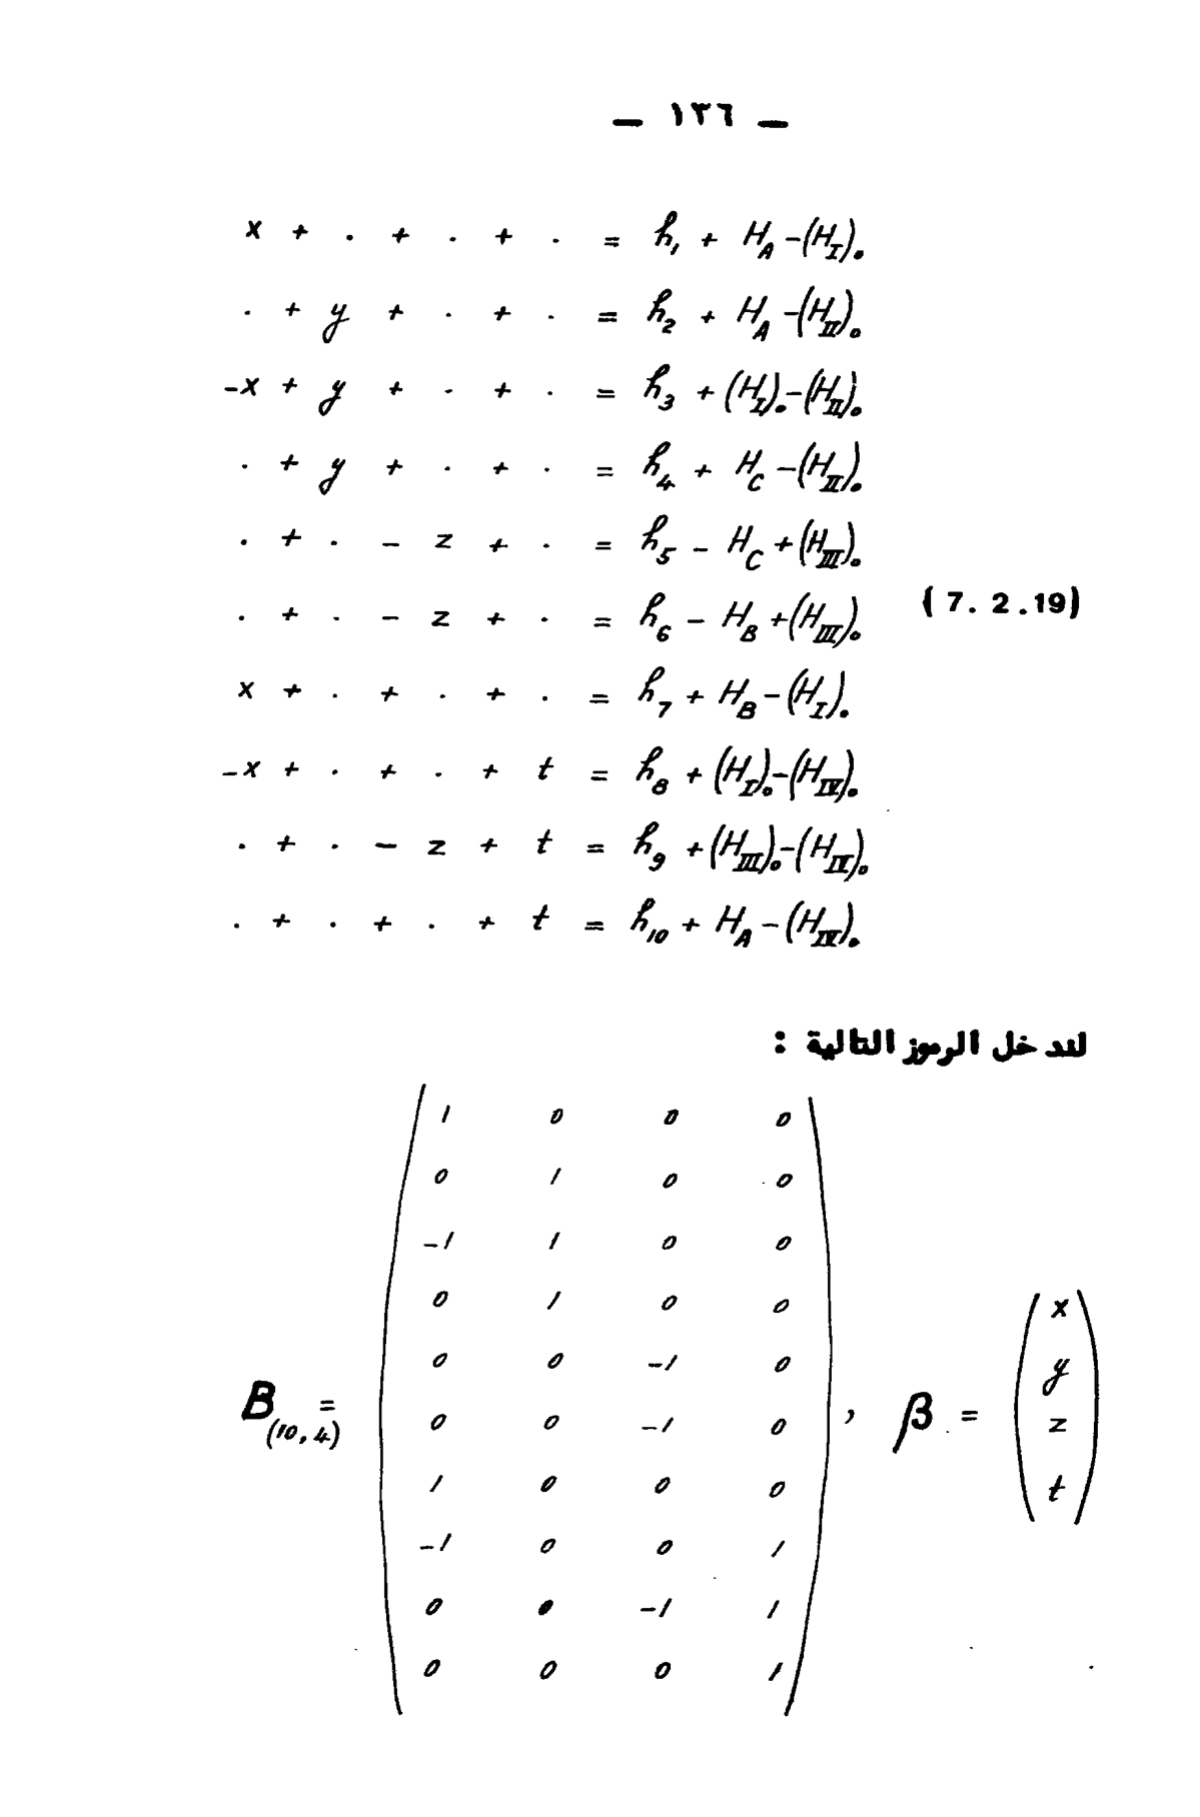 — ١٣٦ —
x + . + . + . = h₁ + H_A - (H_I)₀
. + y + . + . = h₂ + H_A - (H_II)₀
-x + y + . + . = h₃ + (H_I)₀ - (H_II)₀
. + y + . + . = h₄ + H_C - (H_II)₀
. + . - z + . = h₅ - H_C + (H_III)₀
. + . - z + . = h₆ - H_B + (H_III)₀
(7.2.19)
x + . + . + . = h₇ + H_B - (H_I)₀
-x + . + . + t = h₈ + (H_I)₀ - (H_IV)₀
. + . - z + t = h₉ + (H_III)₀ - (H_IV)₀
. + . + . + t = h₁₀ + H_A - (H_IV)₀
لندخل الرموز التالية :
1 0 0 0
0 1 0 0
-1 1 0 0
0 1 0 0
0 0 -1 0
B(10,4) = 0 0 -1 0 , β = (x y z t)
1 0 0 0
-1 0 0 1
0 0 -1 1
0 0 0 1